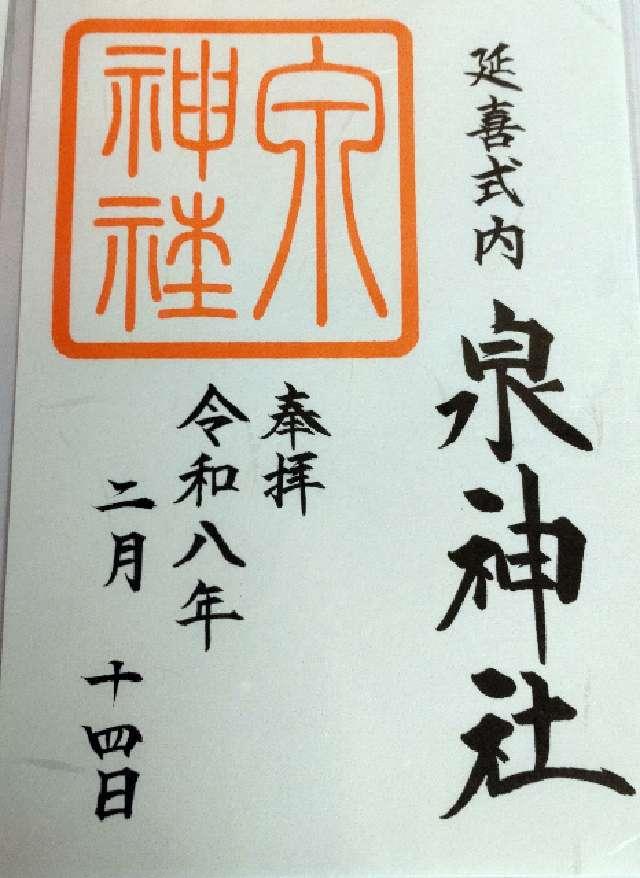 延喜式内
泉神社
奉拝
令和八年
二月 十四日
泉
神社